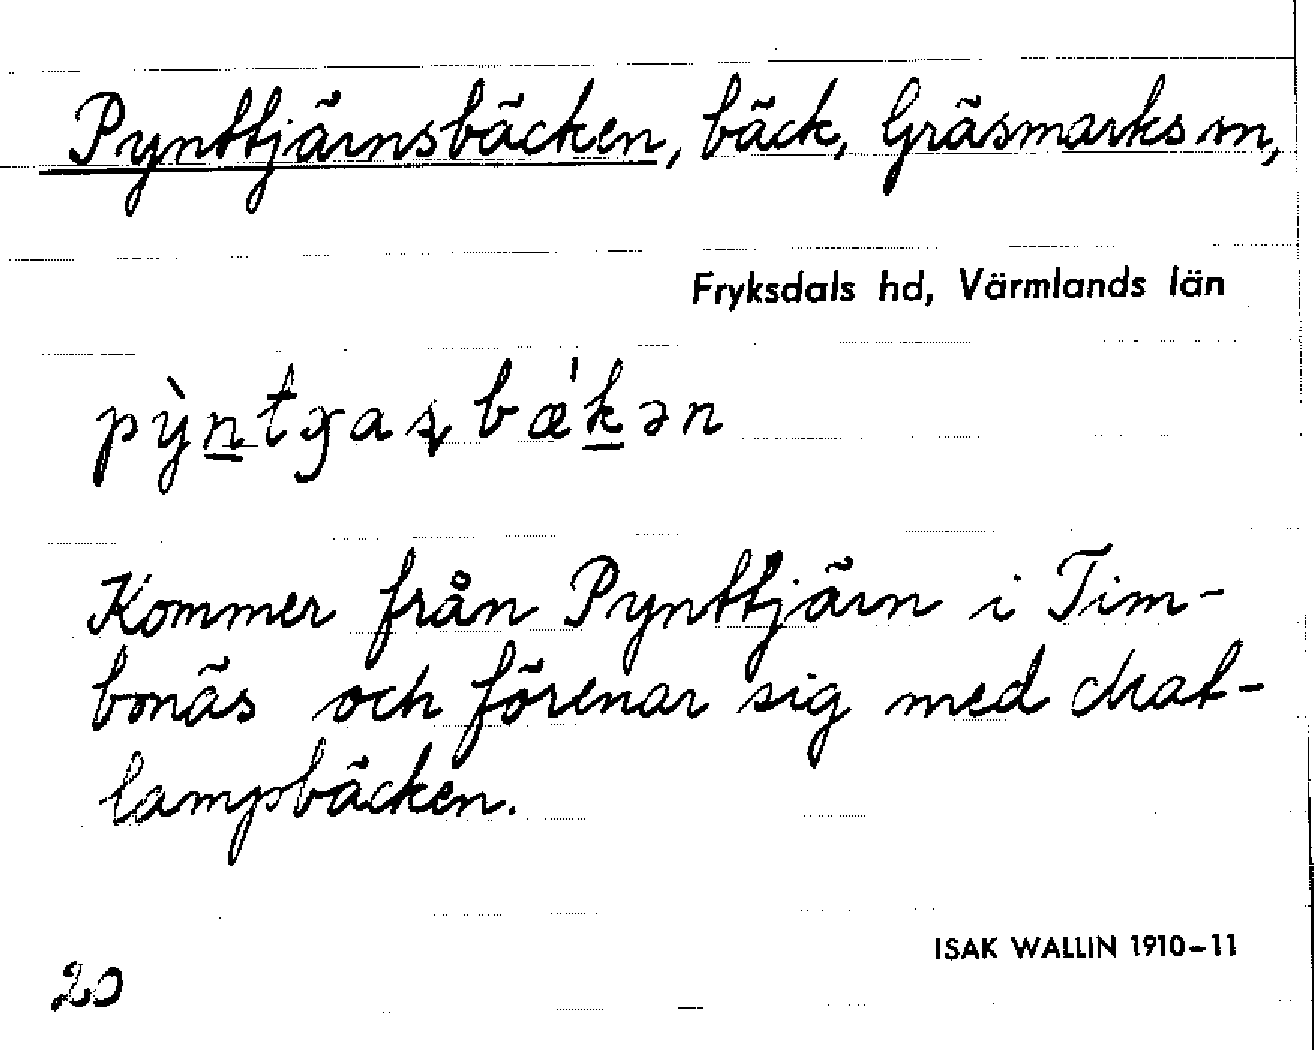 Pynttjärnsbäcken, bäck, Gräsmarks sn,
Fryksdals hd, Värmlands län
Kommer från Pynttjärn i Tim-
bonäs och förenar sig med Mat-
lampbäcken.
ISAK WALLIN 1910–11
20